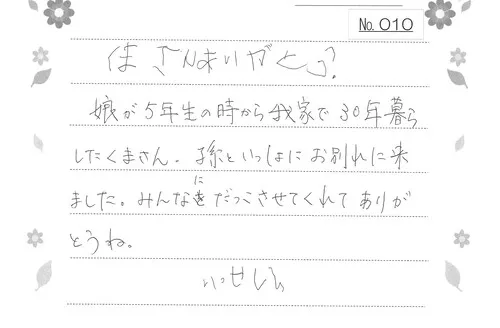 No. 010
くま さんありがとう?
娘が5年生の時から我家で30年暮ら
したくまさん。孫といっしょにお別れに来
ました。みんなにだっこさせてくれてありが
とうね。